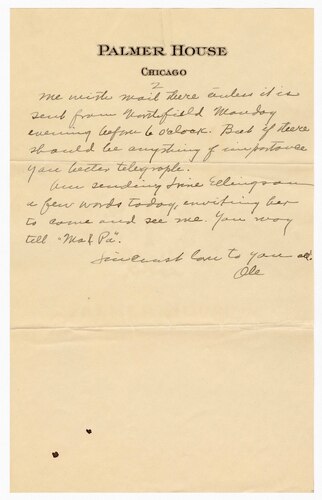 PALMER HOUSE
CHICAGO
2
me with mail there unless it is
sent from Northfield Monday
evening before 6 o'clock. But if there
should be anything of importance
you better telegraph.
Am sending Irine Ellingson
a few words today, inviting her
to come and see me. You may
tell "Ma & Pa".
Sincerest love to you all.
Ole